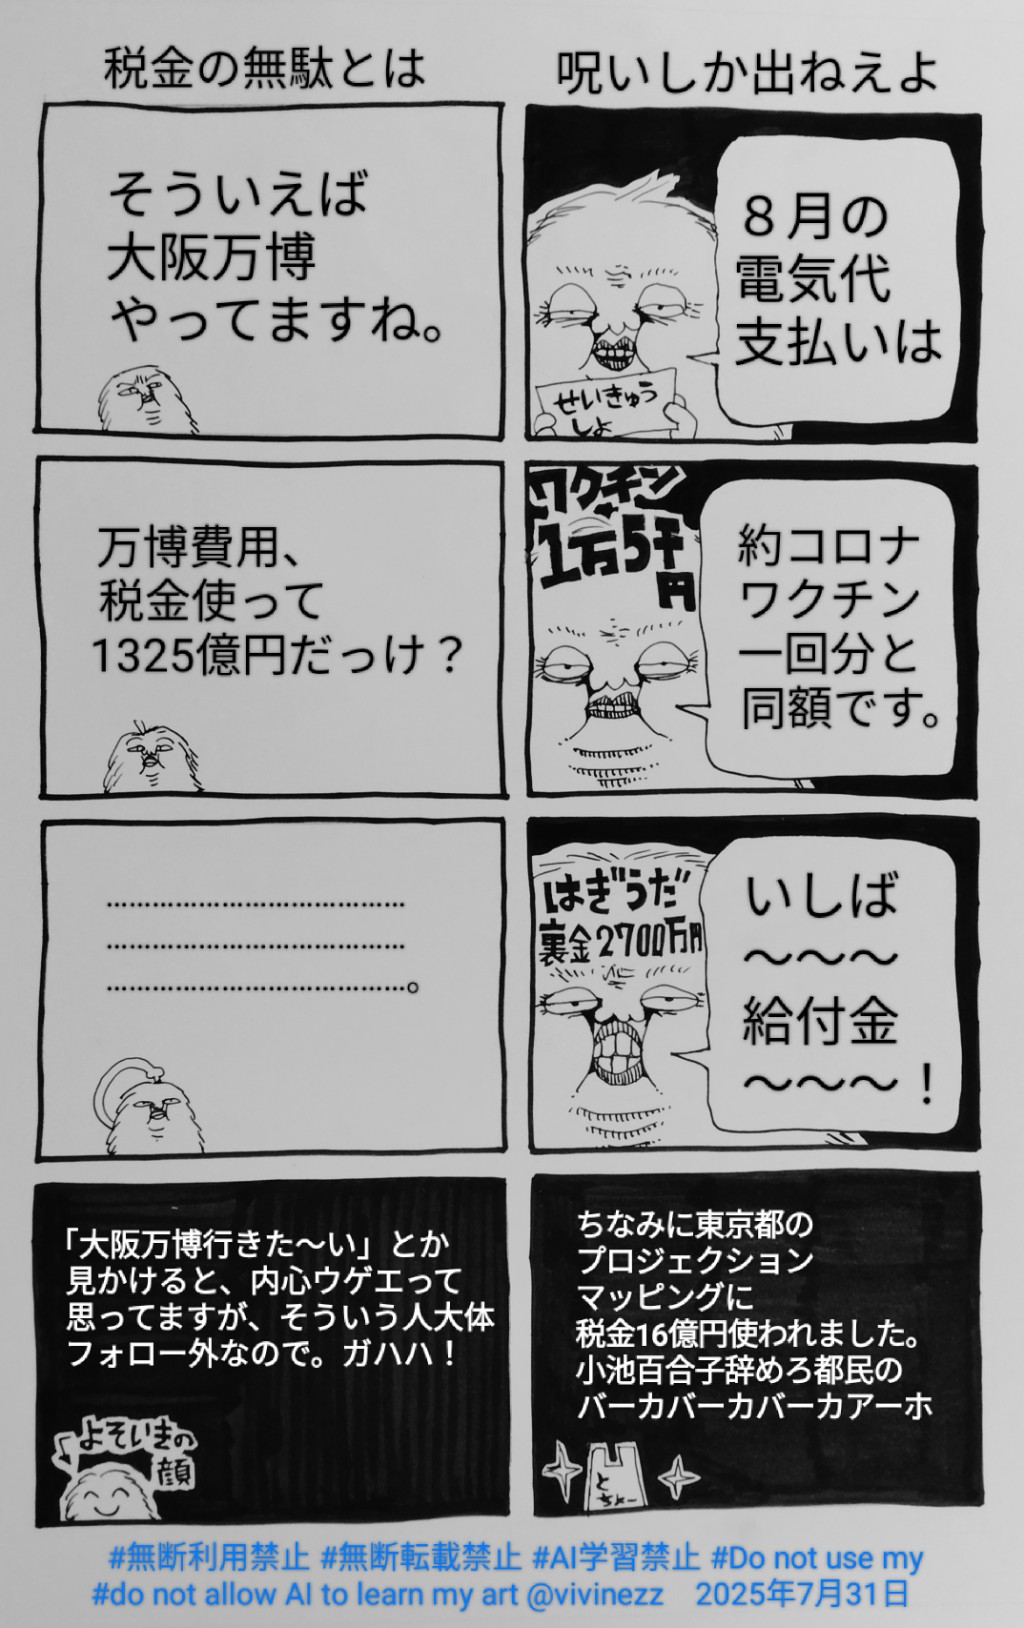 税金の無駄とは
そういえば
大阪万博
やってますね。
万博費用、
税金使って
1325億円だっけ？
………………………………
………………………………
………………………………。
「大阪万博行きた～い」とか
見かけると、内心ウゲエって
思ってますが、そういう人大体
フォロー外なので。ガハハ！
よそいきの
顔
呪いしか出ねえよ
８月の
電気代
支払いは
せいきゅう
しょ
ワクチン
1万5千
円
約コロナ
ワクチン
一回分と
同額です。
はぎうだ
裏金2700万円
いしば
～～～
給付金
～～～！
ちなみに東京都の
プロジェクション
マッピングに
税金16億円使われました。
小池百合子辞めろ都民の
バーカバーカバーカアーホ
と
ちょー
#無断利用禁止 #無断転載禁止 #AI学習禁止 #Do not use my
#do not allow AI to learn my art @vivinezz　2025年7月31日